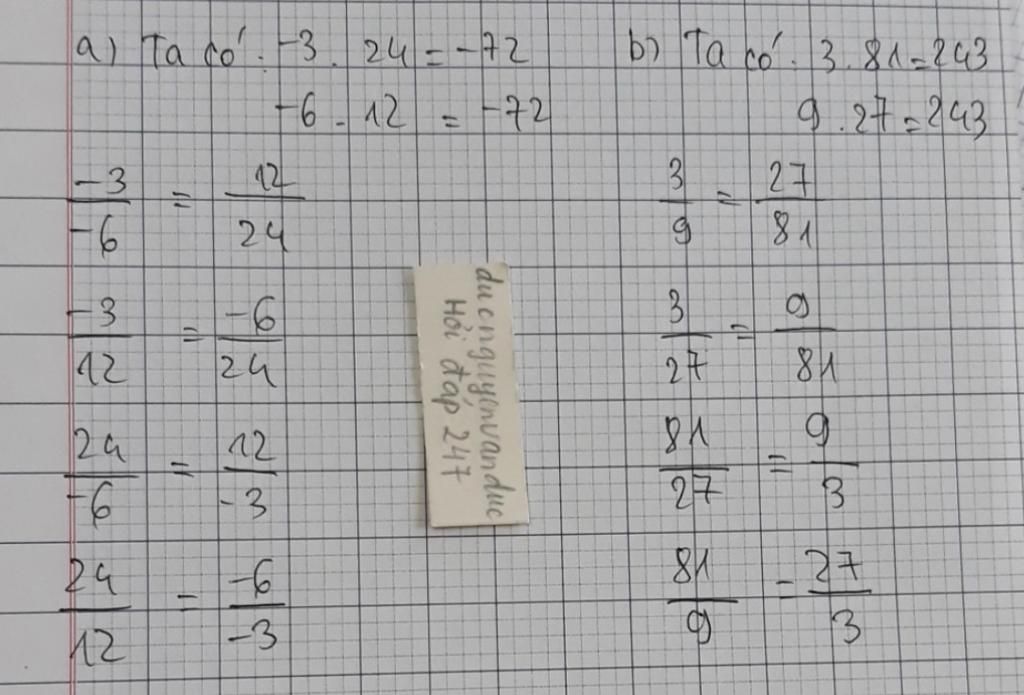 a) Ta có: -3 . 24 = -72
-6 . 12 = -72
-3/-6 = 12/24
-3/12 = -6/24
24/-6 = 12/-3
24/12 = -6/-3
ducnguyenvanduc
Hỏi đáp 247
b) Ta có: 3 . 81 = 243
9 . 27 = 243
3/9 = 27/81
3/27 = 9/81
81/27 = 9/3
81/9 = 27/3